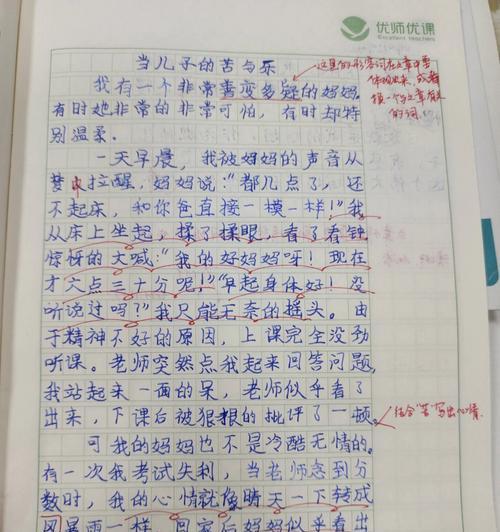 优师优课
Excellent teachers
当儿子的苦与乐
我有一个非常善变多疑的妈妈,
有时她非常的非常可怕,有时却特
别温柔。
这里的形容词在文章中要
体现出来,或者
换一个与文章有关
的词
一天早晨,我被妈妈的声音从
梦中拉醒,妈妈说:“都几点了,还
不起床,和你爸直接一模一样!”我
从床上坐起,揉了揉眼,看了看钟
惊讶的大喊:“我的好妈妈呀!现在
才六点三十分呢!”“早起身体好!没
听说过吗?”我只能无奈的摇头。由
于精神不好的原因,上课完全没劲
听课。老师突然点我起来回答问题,
我站起来一面的呆,老师似乎看了
出来,下课后被狠狠的批评了一顿。
结合“苦”写出心情
可我的妈妈也不是冷酷无情的。
有一次我考试失利,当老师念到分
数时,我的心情就像晴天一下转成
风暴雨一样。回家后妈妈似乎看出